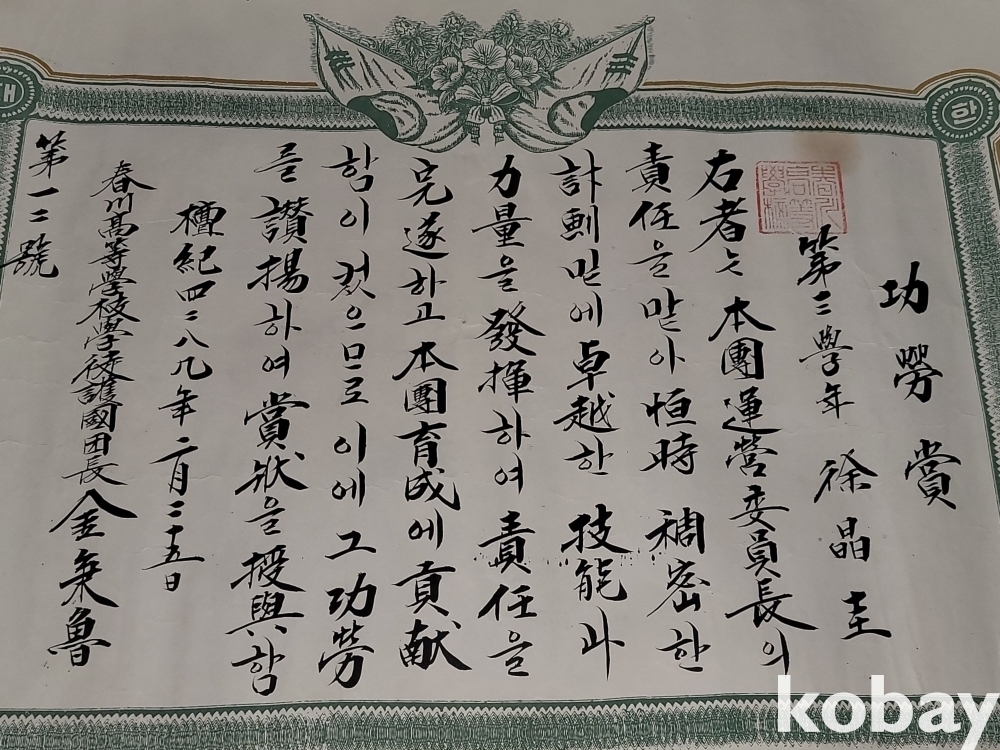 功勞賞
第三學年 徐晶圭
右者는 本團運營委員長의
責任을 맡아 恒時 稠密한
計劃밑에 卓越한 技能과
力量을 發揮하여 責任을
完遂하고 本團育成에 貢献
함이 컷으므로 이에 그 功勞
를 讚揚하여 賞狀을 授與함
檀紀四二八九年 二月二十五日
春川高等學校學徒護國団長 金秉魯
第一二號
kobay